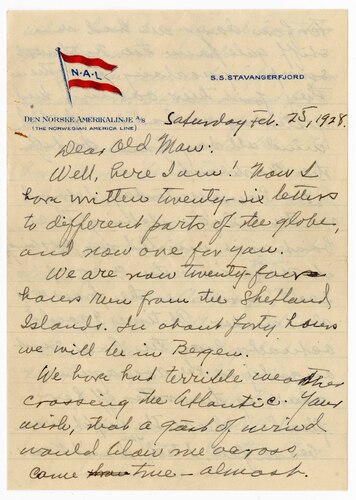 N·A·L
S.S. STAVANGERFJORD
DEN NORSKE AMERIKALINJE A/S
(THE NORWEGIAN AMERICA LINE)
Saturday Feb. 25, 1928.
Dear Old Man:
Well, here I am! Now I
have written twenty-six letters
to different parts of the globe,
and now one for you.
We are now twenty-four
hours run from the Shetland
Islands. In about forty hours
we will be in Bergen.
We have had terrible weather
crossing the Atlantic. Your
wish, that a gast of wind
would blow me across,
came true – almost.